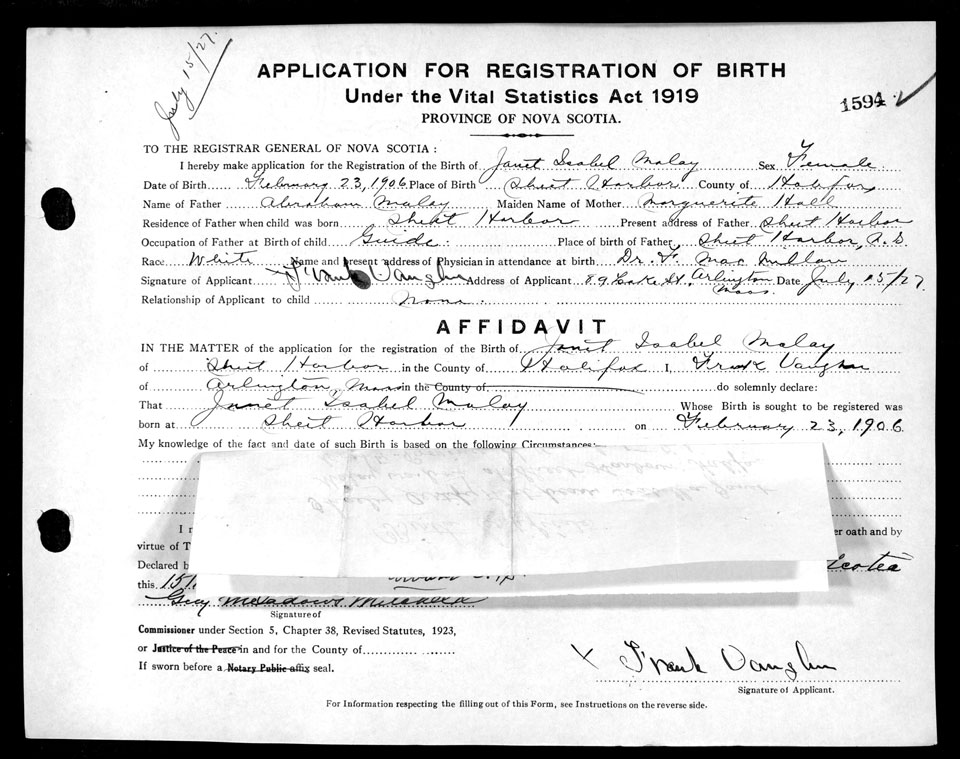 July 15/27.
APPLICATION FOR REGISTRATION OF BIRTH
Under the Vital Statistics Act 1919
1594
PROVINCE OF NOVA SCOTIA.
TO THE REGISTRAR GENERAL OF NOVA SCOTIA:
I hereby make application for the Registration of the Birth of Janet Isabel Malay Sex Female
Date of Birth February 23, 1906 Place of Birth Sheet Harbor County of Halifax
Name of Father Abraham Malay Maiden Name of Mother Marguerite Hall
Residence of Father when child was born Sheet Harbor Present address of Father Sheet Harbor
Occupation of Father at Birth of child Guide Place of birth of Father Sheet Harbor,
Race White Name and present address of Physician in attendance at birth Dr. F. MacMillan
Signature of Applicant Frank Vaughn Address of Applicant 89 Lake St., Arlington Mass. Date July 15/27.
Relationship of Applicant to child None.
AFFIDAVIT
IN THE MATTER of the application for the registration of the Birth of Janet Isabel Malay
of Sheet Harbor in the County of Halifax I, Frank Vaughn
of Arlington, Mass in the County of do solemnly declare:
That Janet Isabel Malay Whose Birth is sought to be registered was
born at Sheet Harbor on February 23, 1906
My knowledge of the fact and date of such Birth is based on the following Circumstances:
er oath and by
virtue of T
Declared b Scotia
this 15
Guy
Signature of
Commissioner under Section 5, Chapter 38, Revised Statutes, 1923,
or Justice of the Peace in and for the County of
If sworn before a Notary Public affix seal.
X Frank Vaughn
Signature of Applicant.
For Information respecting the filling out of this Form, see Instructions on the reverse side.